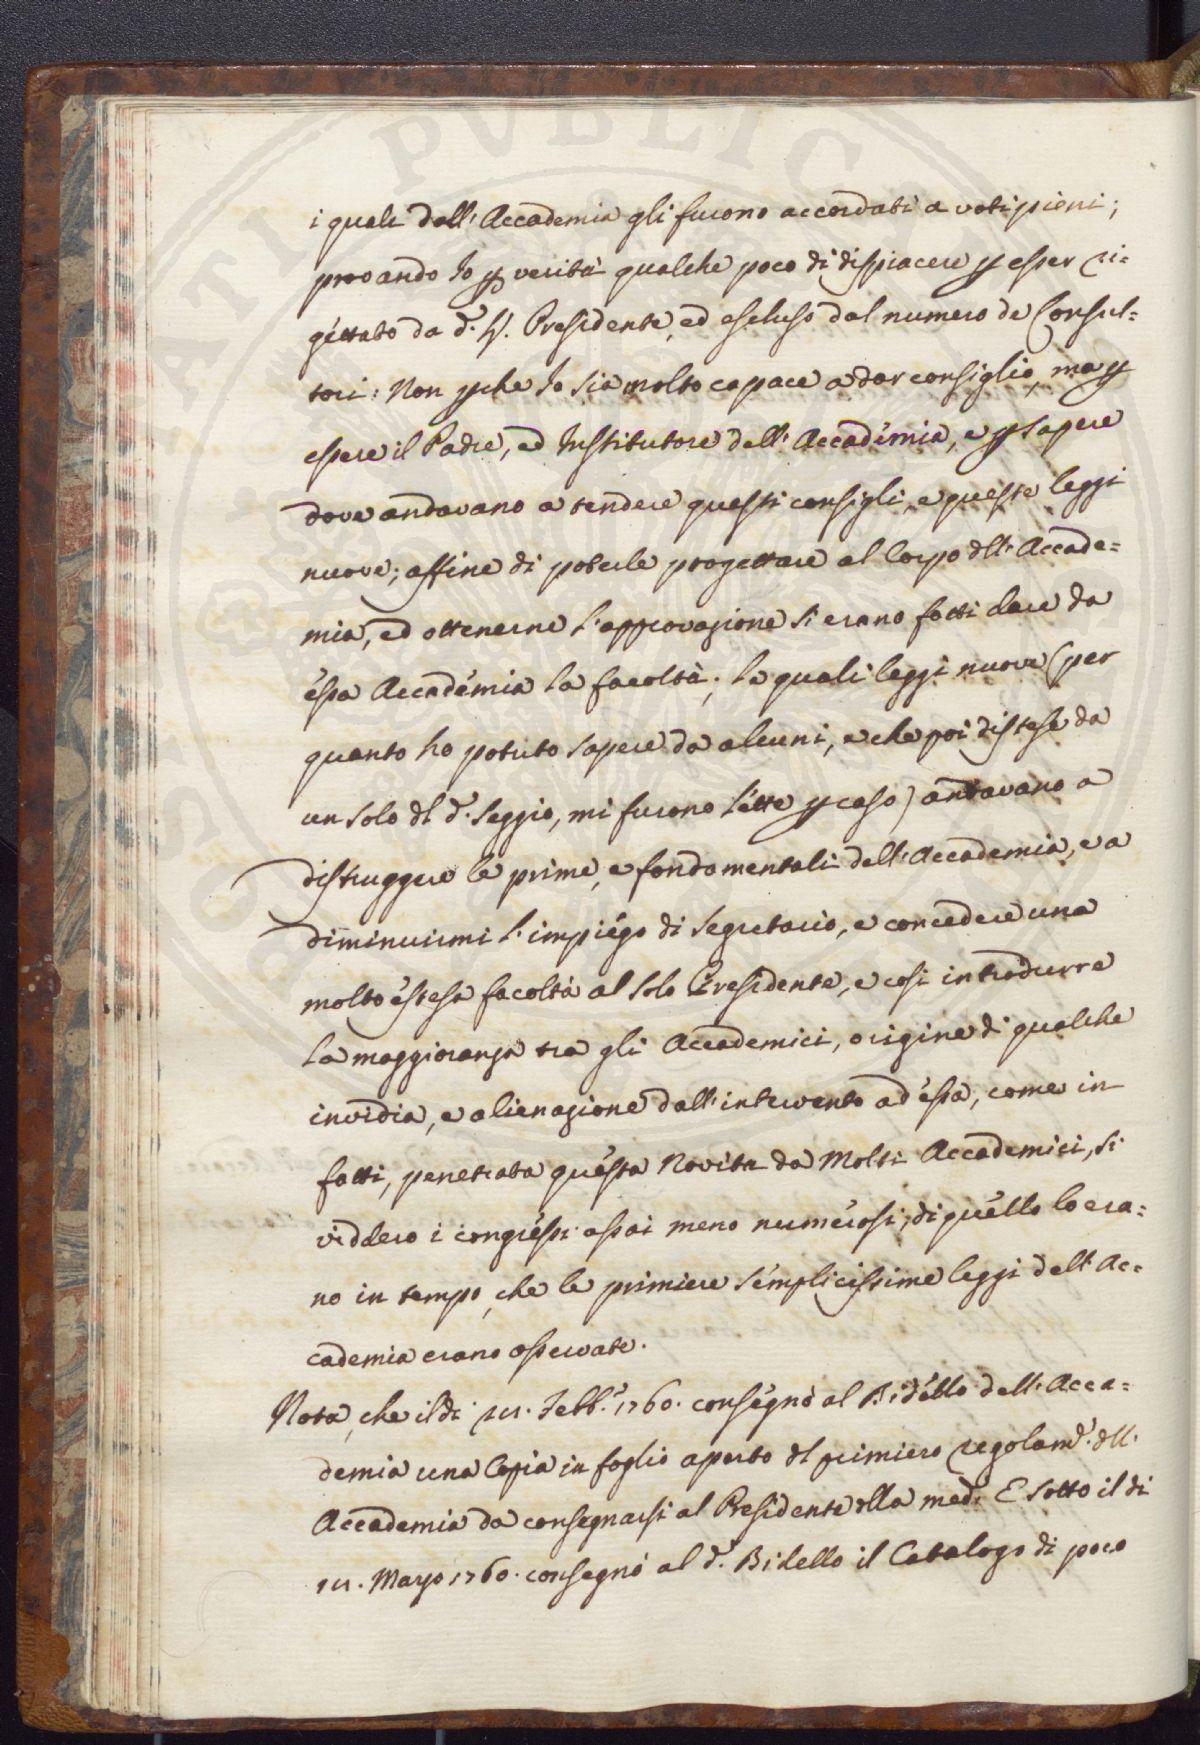 i quali dall'Accademia gli furono accordati a voti pieni;
provando Io p verità qualche poco di dispiacere p esser ri=
gettato da d.º S. Presidente, ed escluso dal numero de Consul=
tori: Non pche Io sia molto capace a dar consiglio, ma p
essere il Padre, ed Institutore dell'Accadémia, e p sapere
dove andavano a tendere questi consigli, e queste leggi
nuove; affine di poterle progettare al Corpo dll'Accade=
mia, ed ottenerne l'approvazione si erano fatti dare da
éssa Accadémia la facoltà; le quali leggi nuove (per
quanto ho potuto sapere da alcuni, e che poi distese da
un solo dl d.º Seggio, mi furono létte p caso) andavano a
distruggere le prime, e fondamentali dell'Accademia, e a
diminuirmi l'impiégo di Segretario, e concedere una
molto éstesa facoltà al solo Presidente, e così introdurre
la maggioranza tra gli Accademici, origine di qualche
invidia, e alienazione dall'intervento ad éssa, come in
fatti, penetrata quésta Novità da Molti Accademici, si
viddero i congréssi assai meno numérosi, di quéllo lo era=
no in tempo, che le primiere sémplicissime leggi dell'Ac=
cademia erano osservate.
Nota, che il dì 21. Febb.º 1760. conségnò al Bidéllo dell'Acca=
demia una Copia in foglio aperto dl primiero regolam.º dll'
Accademia da consegnarsi al Presidente dlla med.ª E sotto il dì
11. Marzo 1760. consegnò al d.º Bidello il Catalogo di poco